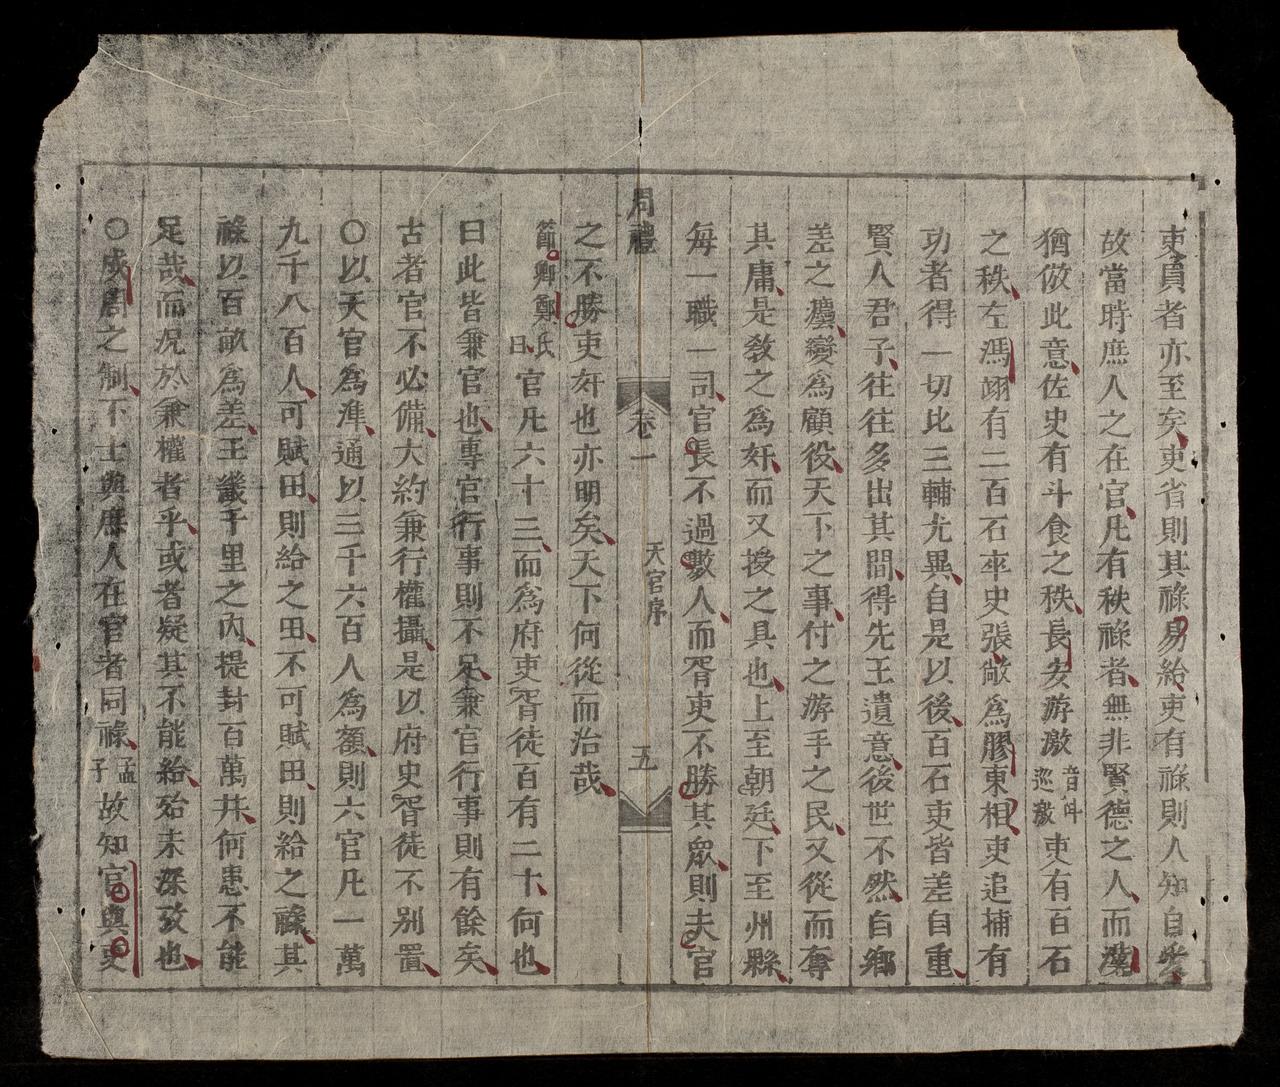 吏員者亦至矣吏省則其祿易給吏有祿則人知自考
故當時庶人之在官凡有秩祿者無非賢德之人而漢
猶倣此意佐史有斗食之秩長安游激音叫巡激吏有百石
之秩左馮翊有二百石卒史張敞為膠東相吏追捕有
功者得一切比三輔尤異自是以後百石吏皆差自重
賢人君子往往多出其間得先王遺意後世不然自鄉
差之壞變為顧役天下之事付之游手之民又從而奪
其庸是敎之為奸而又授之具也上至朝廷下至州縣
每一職一司官長不過數人而胥吏不勝其眾則夫官
周禮 卷一 天官序 五
之不勝吏奸也亦明矣天下何從而治哉
節卿鄭氏曰官凡六十三而為府吏胥徒百有二十何也
曰此皆兼官也專官行事則不足兼官行事則有餘矣
古者官不必備大約兼行權攝是以府史胥徒不別置
○以天官為準通以三千六百人為額則六官凡一萬
九千八百人可賦田則給之田不可賦田則給之祿其
祿以百畝為差王畿千里之內提封百萬井何患不能
足哉而况於兼權者乎或者疑其不能給殆未深攷也
○成周之制下士與庶人在官者同祿孟子故知官與吏